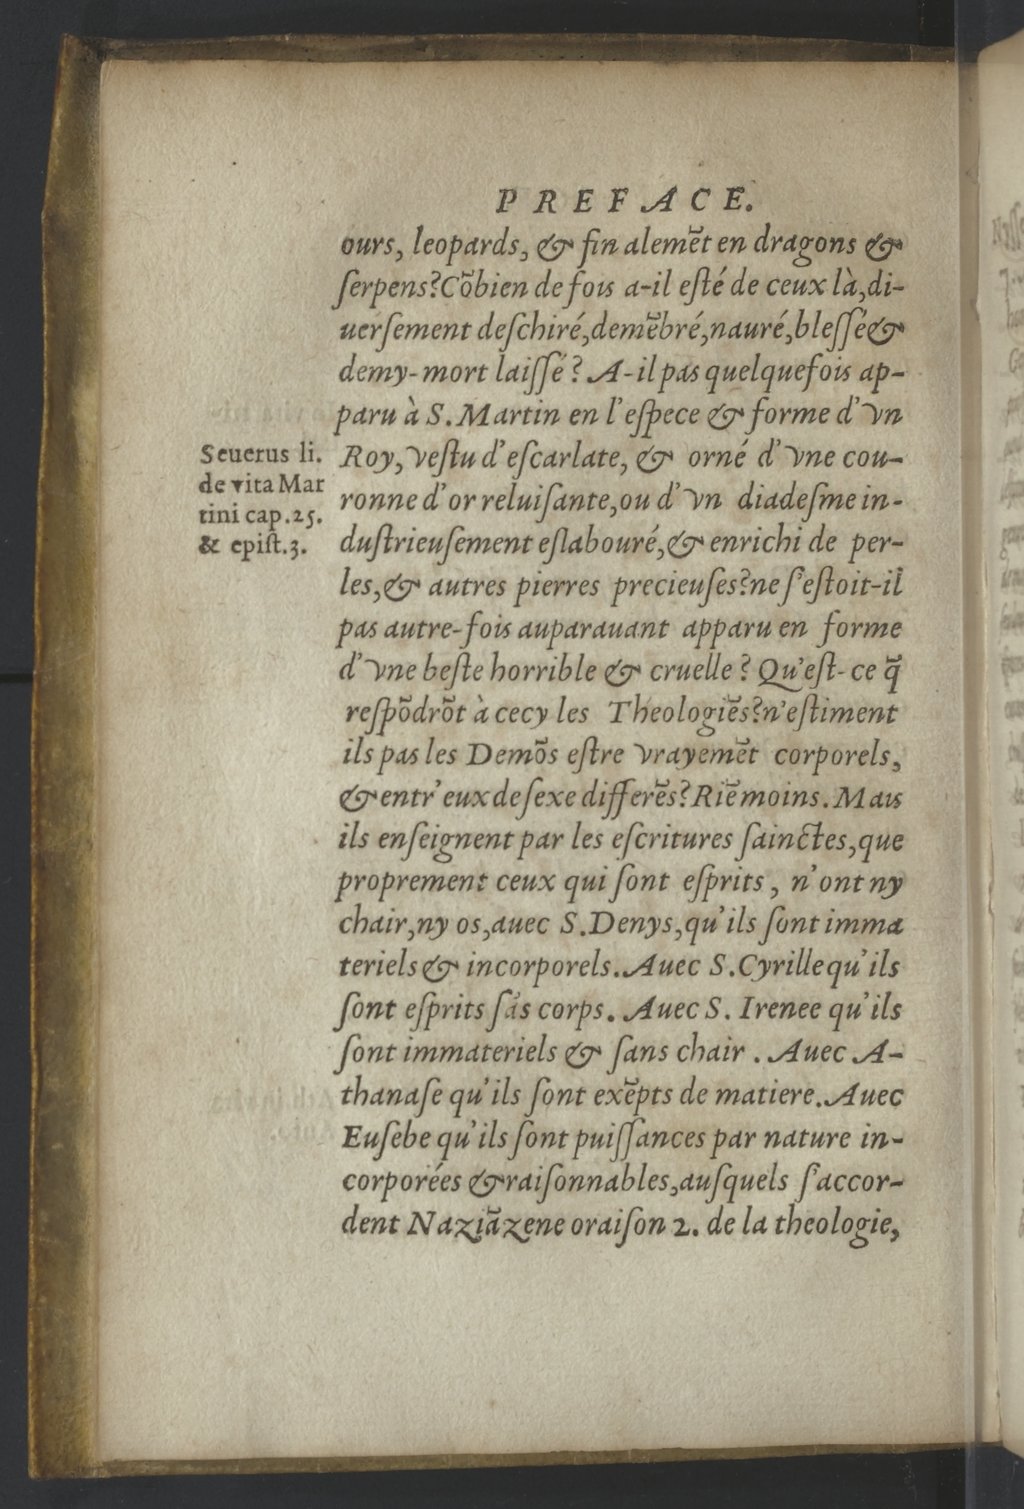 PREFACE.
ours, leopards, & fin alemẽt en dragons &
ſerpens?Cõbien de fois a-il eſté de ceux là,di-
uerſement deſchiré,demẽbré,nauré,bleſſé&
demy-mort laiſſé? A-il pas quelquefois ap-
paru à S.Martin en l'eſpece & forme d'vn
Roy,veſtu d'eſcarlate, & orné d'vne cou-
ronne d'or reluiſante,ou d'vn diadeſme in-
duſtrieuſement eſlabouré,& enrichi de per-
les,& autres pierres precieuſes?ne ſ'eſtoit-il
pas autre-fois auparauant apparu en forme
d'vne beſte horrible & cruelle? Qu'eſt-ce q̃
reſpõdrõt à cecy les Theologiẽs?n'eſtiment
ils pas les Demõs eſtre vrayemẽt corporels,
& entr'eux de ſexe differẽs?Riẽ moins. Mais
ils enſeignent par les eſcritures ſainctes,que
proprement ceux qui ſont eſprits, n'ont ny
chair,ny os,auec S.Denys,qu'ils ſont imma
teriels & incorporels.Auec S.Cyrille qu'ils
ſont eſprits ſãs corps. Auec S. Irenee qu'ils
ſont immateriels & ſans chair. Auec A-
thanaſe qu'ils ſont exẽpts de matiere.Auec
Euſebe qu'ils ſont puiſſances par nature in-
corporées & raiſonnables,auſquels ſ'accor-
dent Naziãzene oraiſon 2. de la theologie,
Seuerus li.
de vita Mar
tini cap.25.
& epiſt.3.